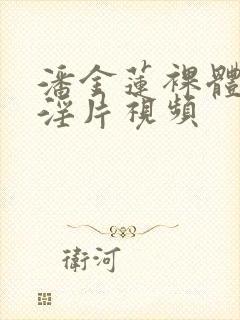 潘金蓮裸體
淫片視頻
衛河